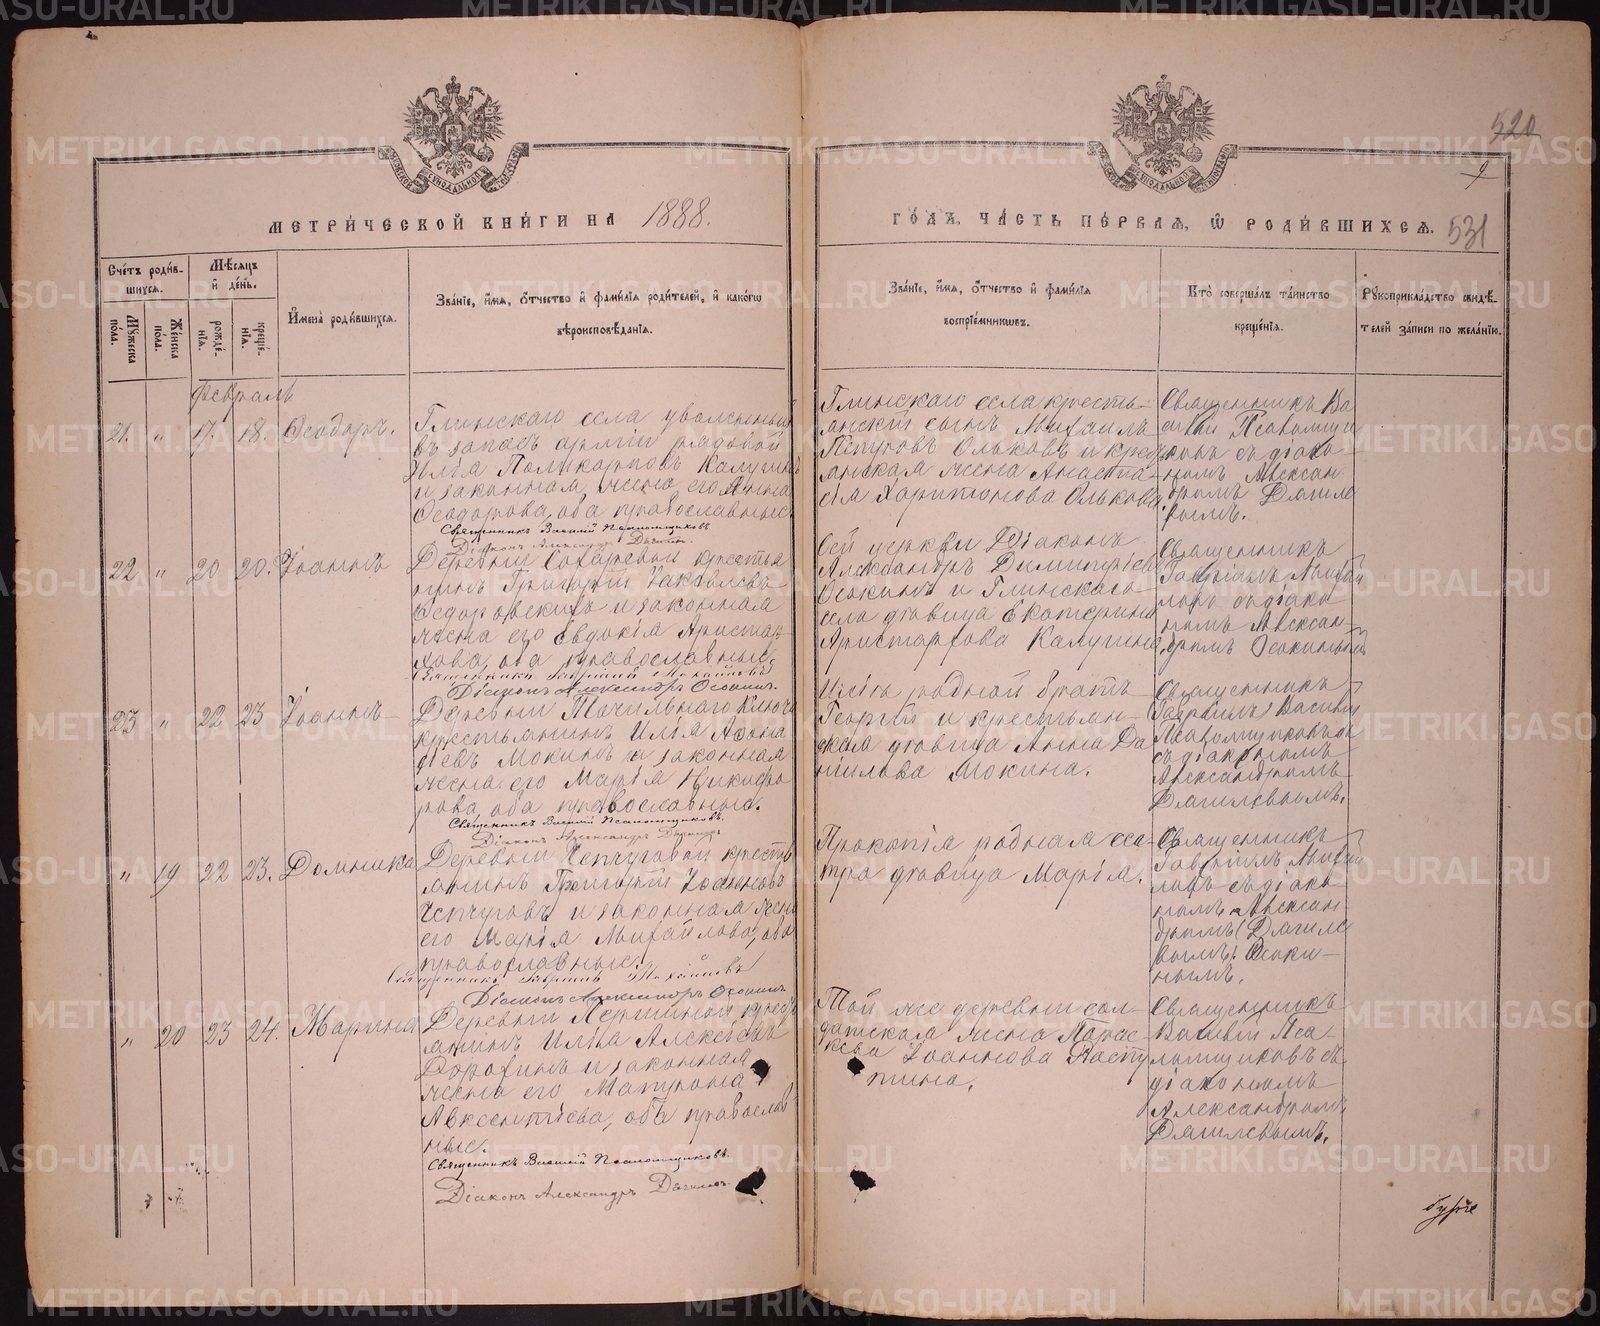 520
9
МЕТРИ́ЧЕСКОЙ КНИ́ГИ НА 1888.
ГО́ДЪ, ЧА́СТЬ ПЕ́РВАЯ, Ѡ РОДИ́ВШИХСЯ.
531
Сче́тъ роди́в-
шихся.
Мѣ́сяцъ
и де́нь.
Му́жеска
по́ла.
Же́нска
по́ла.
рожде́-
нія.
креще́-
нія.
И́мена̀ роди́вшихся.
Зва́ніе, и́мя, о́тчество и фами́лія роди́телей, и како́гѡ
вѣроисповѣ́данія.
Зва́ніе, и́мя, о́тчество и фами́лія
воспріе́мниковъ.
Кто̀ соверша́лъ та́инство
креще́нія.
Рукоприкла́дство свидѣ́-
телей за́писи по жела́нію.
Февраль
21. " 17. 18. Ѳеодоръ.
Глинскаго села уволенный
въ запасъ арміи рядовой
Илія Поликарповъ Калугинъ
и законная жена его Анна
Ѳеодорова, оба православные.
Священникъ Василій Псаломщиковъ
Діаконъ Александръ
Глинскаго села кресть-
янскій сынъ Михаилъ
Петровъ Ольковъ и крес
янская жена Анаста
сія Харитонова Олькова.
Священникъ Ва
силій Псаломщи
ковъ съ діако-
номъ Алексан-
дромъ Дягиле
вымъ.
22 " 20 20. Іоаннъ
Деревни Сохаревой крестья
нинъ Григорій Іаковлевъ
и законная
жена его Евдокія Аристар-
хова, оба православные.
Священникъ Гавріилъ
Діаконъ Александръ Осокинъ.
Сей церкви Діаконъ
Александръ Димитріев
Осокинъ и Глинскаго
села дѣвица Екатерина
Аристархова Калугина.
Священникъ
Гавріилъ Михай
ловъ съ діако
номъ Алексан-
дромъ Осокинымъ
23 " 22 23 Іоаннъ
Деревни Точильнаго Ключа
крестьянинъ Илія Аѳона
сіевъ Мокинъ и законная
жена его Марія Никифо
рова, оба православные.
Священникъ Василій Псаломщиковъ.
Діаконъ Александръ
Иліи родной братъ
Георгій и крестьян-
ская дѣвица Анна Да
нилова Мокина.
Священникъ
Гавріилъ Василій
Псаломщиковъ
съ діакономъ
Александромъ
Дягилевымъ.
" 19 22 23. Домника
Деревни Чепчуговой кресть
янинъ Григорій Іоанновъ
Чепчуговъ и законная жена
его Марія Михайлова, оба
православные.
Священникъ Гавріилъ Михайловъ
Діаконъ Александръ Осокинъ
Прокопія родная сес-
тра дѣвица Марія.
Священникъ
Гавріилъ Михай
ловъ съ діако-
номъ Алексан-
дромъ (Дягиле
вымъ) Осоки-
нымъ.
" 20 23 24. Марина
Деревни Першиной крест
янинъ Илія Алексѣевъ
Дорохинъ и законная
жена его Матрона
Авксентіева, оба православ
ные.
Священникъ Василій Псаломщиковъ.
Діаконъ Александръ
Той же деревни сол-
датская жена Парас-
кева Іоаннова
Священникъ
Василій Пса-
ломщиковъ съ
діакономъ
Александромъ
Дягилевымъ.